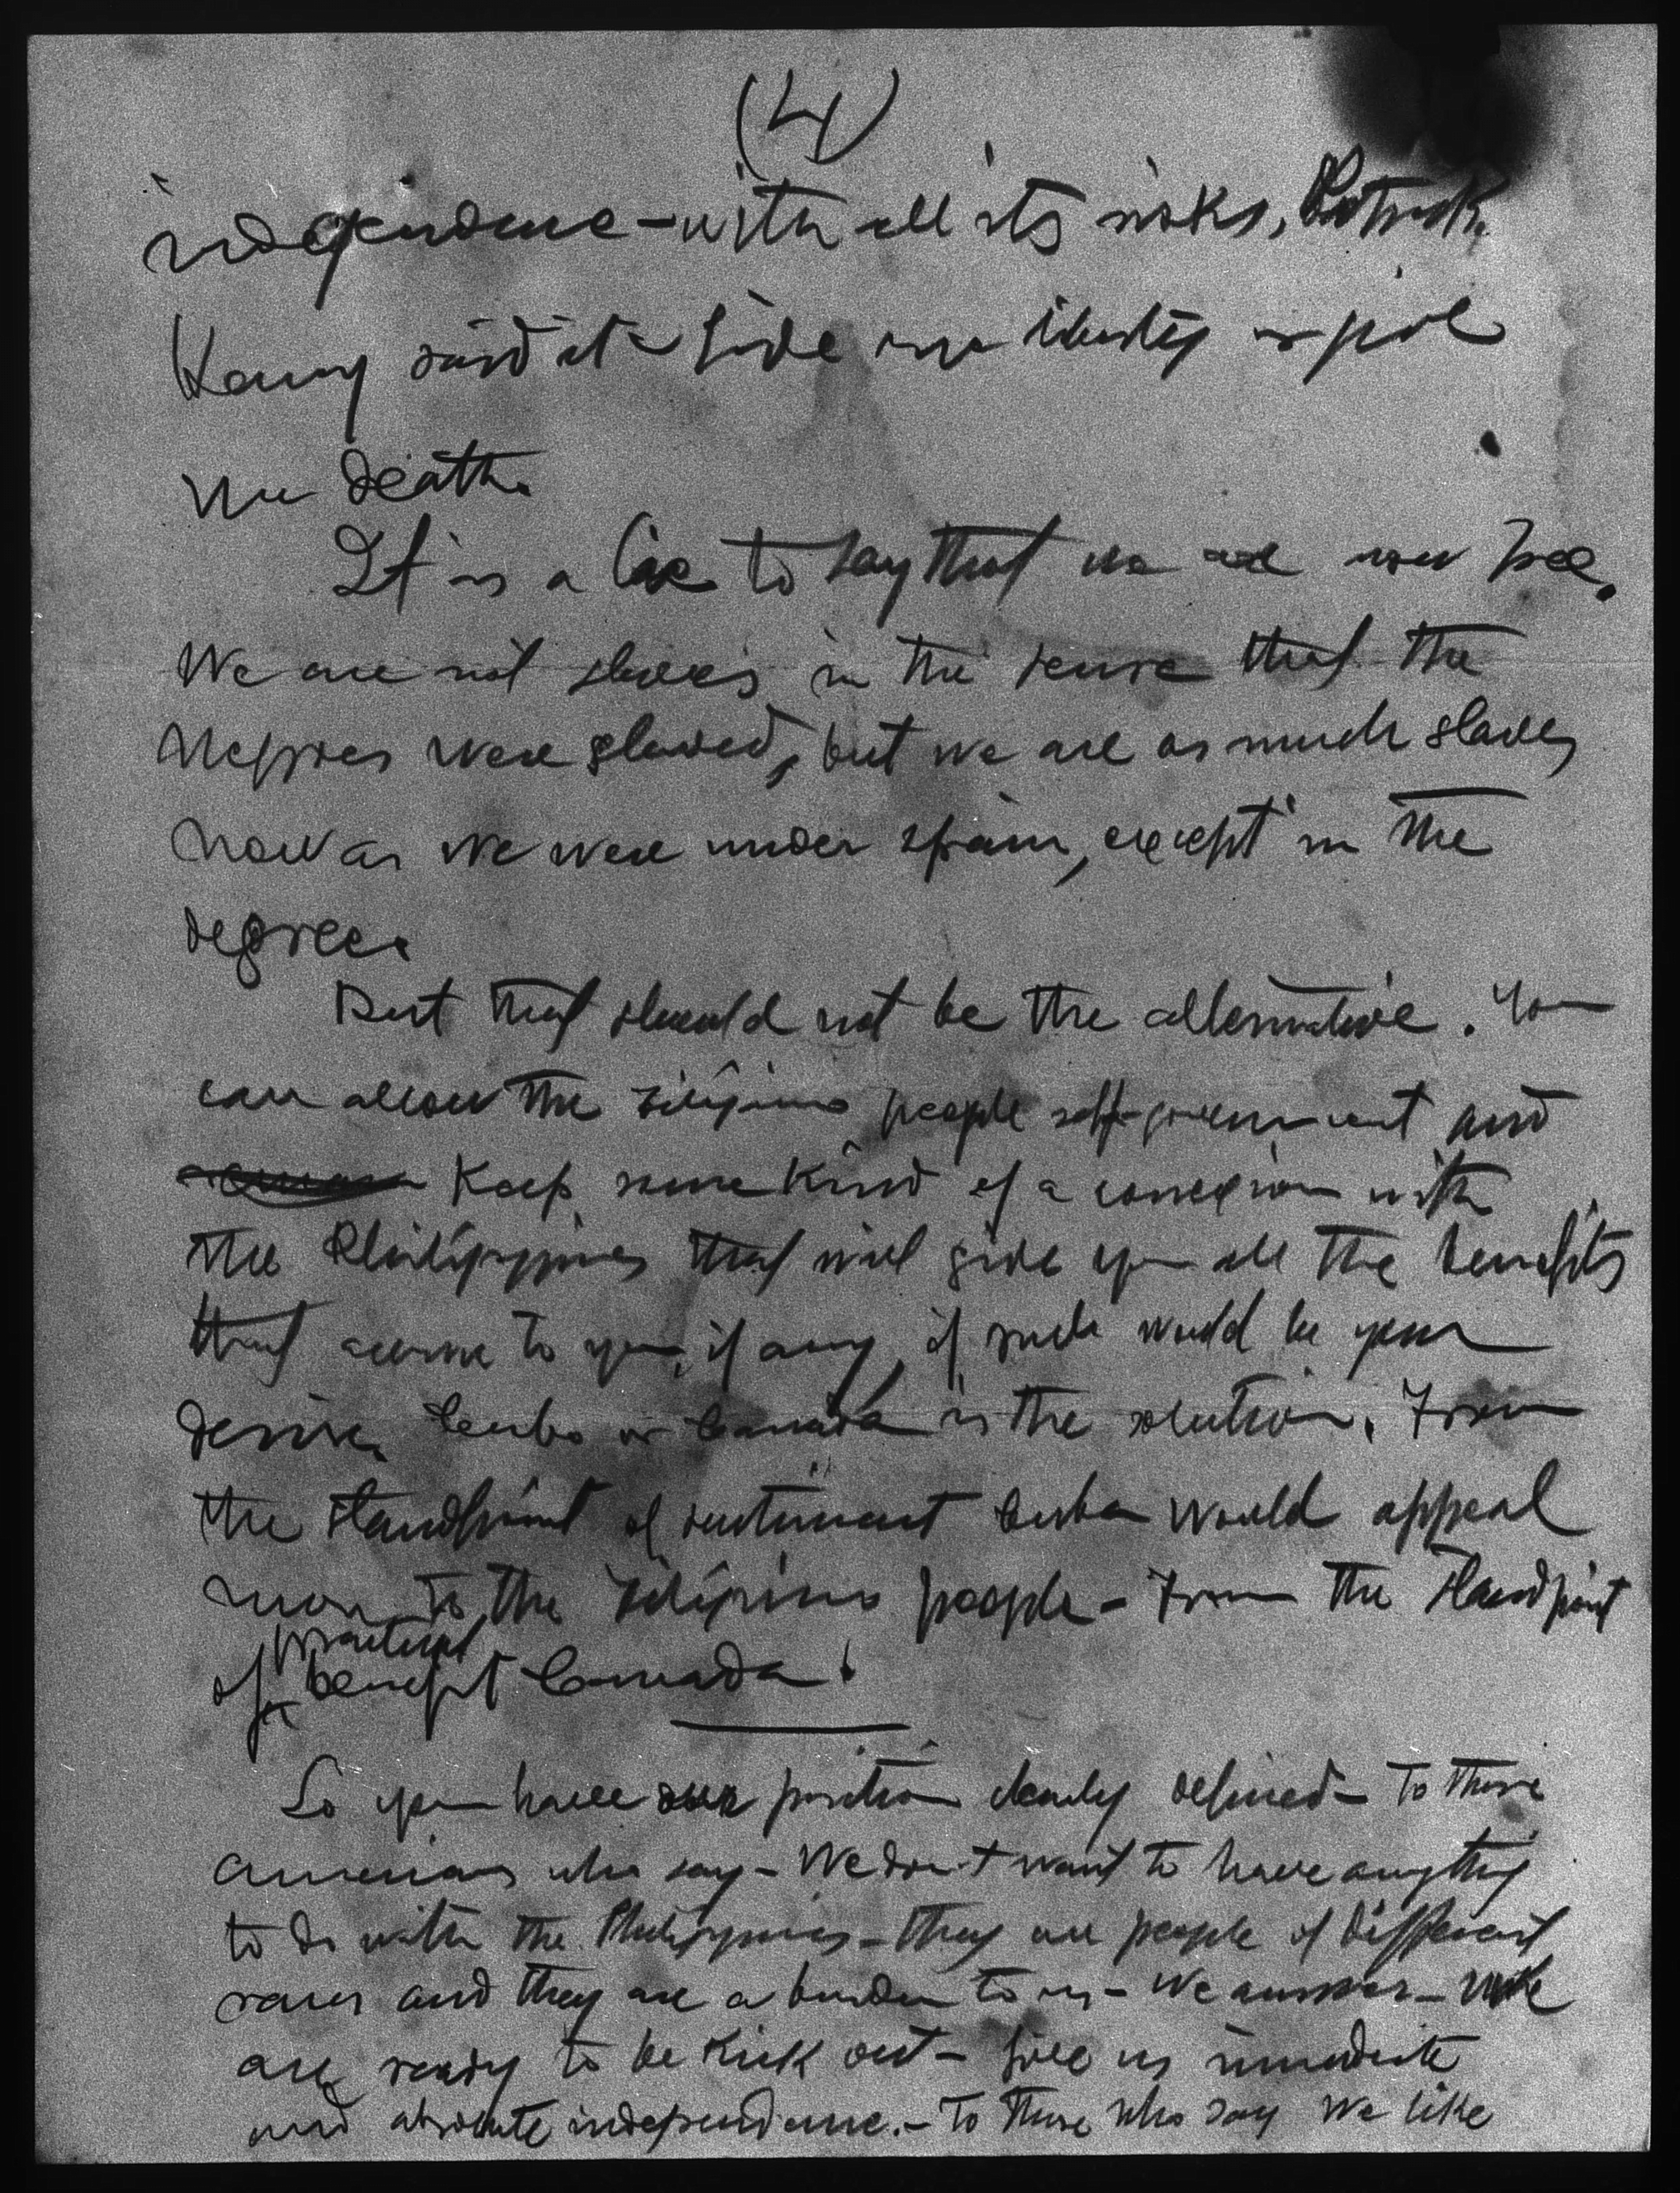 (4)
independence - with all its risks. Patrick
Henry said it - Give me liberty or give
me death.
It is a lie to say that we are now free.
We are not slaves in the sense that the
Negroes were slaved, but we are as much slaves
now as we were under Spain, except in the
degree.
But that should not be the alternative. You
can allow the Filipino people self-government and
Keep some kind of a conexion with
the Philippines that will give you all the benefits
that accrue to you, if any, if such would be your
desire. Cuba or Canada is the solution. From
the standpoint of sentiment Cuba would appeal
more to the Filipino people - From the standpoint
of practical benefit Canada.
So you have our position clearly defined - To those
Americans who say - We don't want to have anything
to do with the Philippines - they are people of different
races and they are a burden to us - We answer - We
are ready to be kick out - Give us immediate
and absolute independence. - To those who say we like